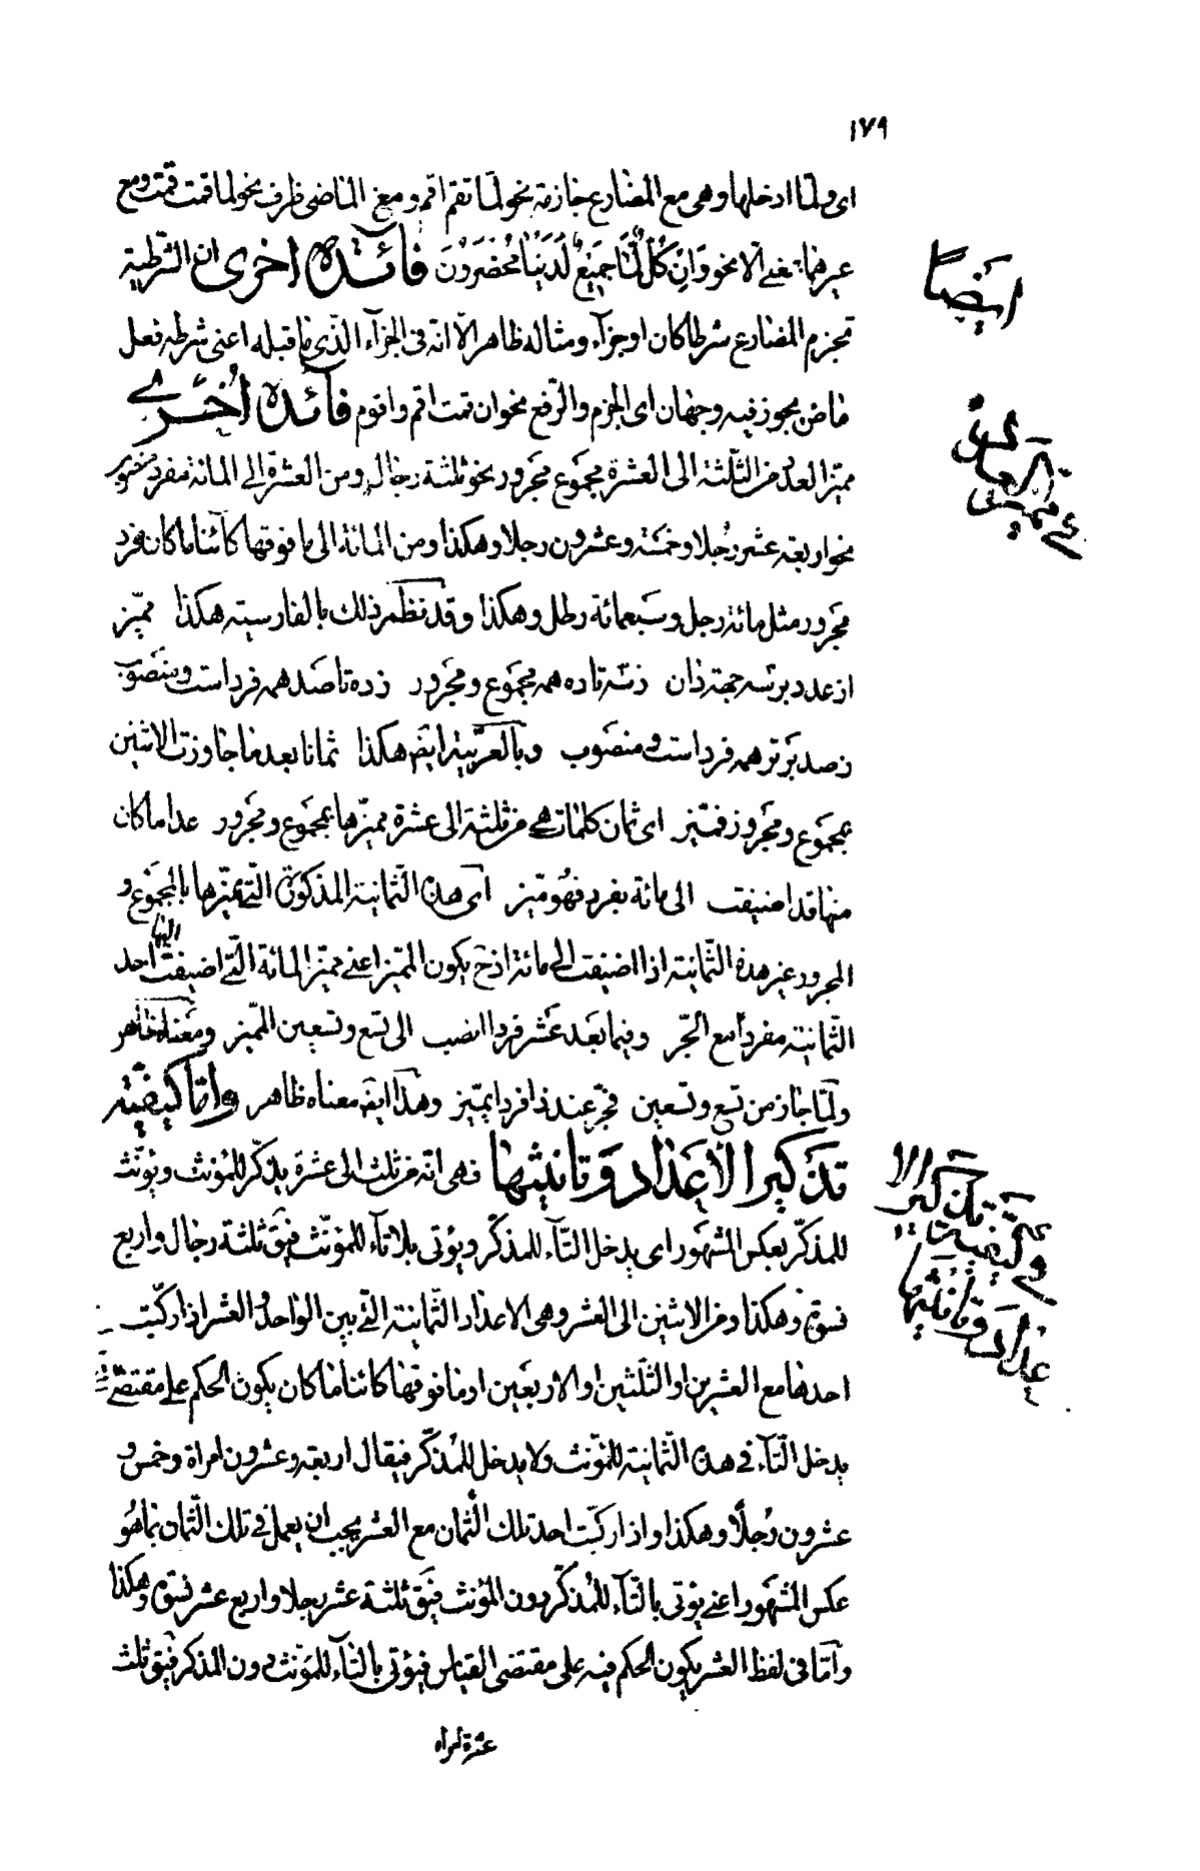 ١٧٩
اى ولمّا ادخلها وهى مع المضارع جازمة نحو لمّا تقم اقم ومع الماضى ظرف نحو لما قمت قمت ومع
غيرهما بمعنى الّا نحو وَاِنْ كُلٌّ لَمّا جَمِيعٌ لَدَيْنا مُحْضَرُونَ فائدة اخرى ان الشّرطية
ايضًا
تجزم المضارع شرطا كان او جزآء ومثاله ظاهر الّا انّه فى الجزآء الّذى ما قبله اعنى شرطه فعل
ماض يجوز فيه وجهان اى الجزم والرّفع نحو ان قمت اقم واقوم فآئدة اُخرى
مميّز العدد من الثّلثة الى العشرة مجموع مجرور نحو ثلثة رجال ومن العشرة الى المائة مفرد منصوب
نحو اربعة عشر رجلا وخمسة وعشرون رجلا وهكذا ومن المائة الى ما فوقها كآئنا ما كان فرد
مجرور مثل مائة رجل وسبعمائة رطل وهكذا وقد نظم ذلك بالفارسيته هكذا مميّز
از عدد بر سه جهة دان ز سه تا ده همه مجموع ومجرور ز ده تا صد همه فرد است ومنصوب
ز صد برتر همه فرد است ومنصوب وبالعربيّة ايضا هكذا ثمانا بعد ما جاوزت الاثنين
بمجموع ومجرور فميّز اى ثمان كلمات هى من ثلثة الى عشرة مميّزها مجموع ومجرور عدا ما كان
منها قد اضيفت الى مائة بفرد فهو ميّز اى هذه الثّمانية المذكورة الّتى مميّزها بالمجموع و
المجرور غير هذه الثّمانية اذا اضيفت الى مائة اذح يكون المميّز اعنى مميّز المائة الّتى اضيفت اليها احد
الثّمانية مفردا مع الجّر وفيما بعد عشر فردا انصب الى تسع وتسعين المميّز ومعناه ظاهر
ولمّا جاز من تسع وتسعين فجرّ عند ذا فردا يميّز وهذا ايضا معناه ظاهر وامّا كيفيّة
تذكير الاعداد وتانيثها فهى انّه من ثلث الى عشرة يذكّر للمؤنث ويؤنّث
للمذكّر بعكس المشهور اى يدخل التّآء للمذكّر ويؤتى بلا تآء للمؤنّث فيق ثلثة رجال واربع
نسوة وهكذا ومن الاثنين الى العشر وهى الاعداد الثّمانية الّتى بين الواحد والعشر اذا ركّبت
احدها مع العشرين او الثّلثين او الاربعين او ما فوقها كائنا ما كان يكون الحكم على مقتضى
يدخل التّآء فى هذه الثّمانية للمؤنث ولا يدخل للمُذكّر فيقال اربعة وعشرون امراة وخمس و
عشرون رجلًا وهكذا واذا ركّبت احد تلك الثّمان مع العشر يجب ان يعمل فى تلك الثّمان بما هُو
عكس المشهور اعنى يؤتى بالتّآء للمُذكّر دون المؤنث فيق ثلثة عشر رجلا واربع عشر نسوة وهكذا
وامّا فى لفظ العشر يكون الحكم فيه على مقتضى القياس فيؤتى بالتآء للمؤنّث دون المذكر فيق ثلث
عشرة امراه